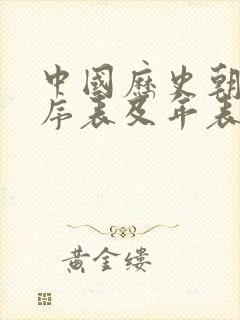 中國歷史朝
序表及年表
黃金缕